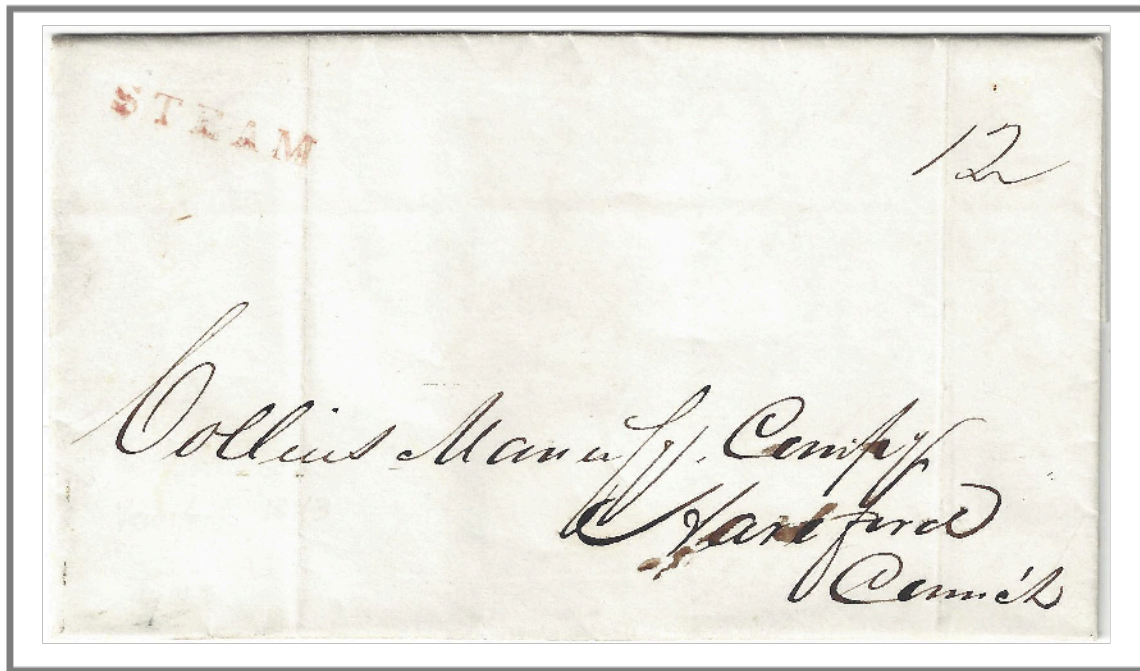 STEAM
12
Collins Manufg. Compy.
Hartford
Connct